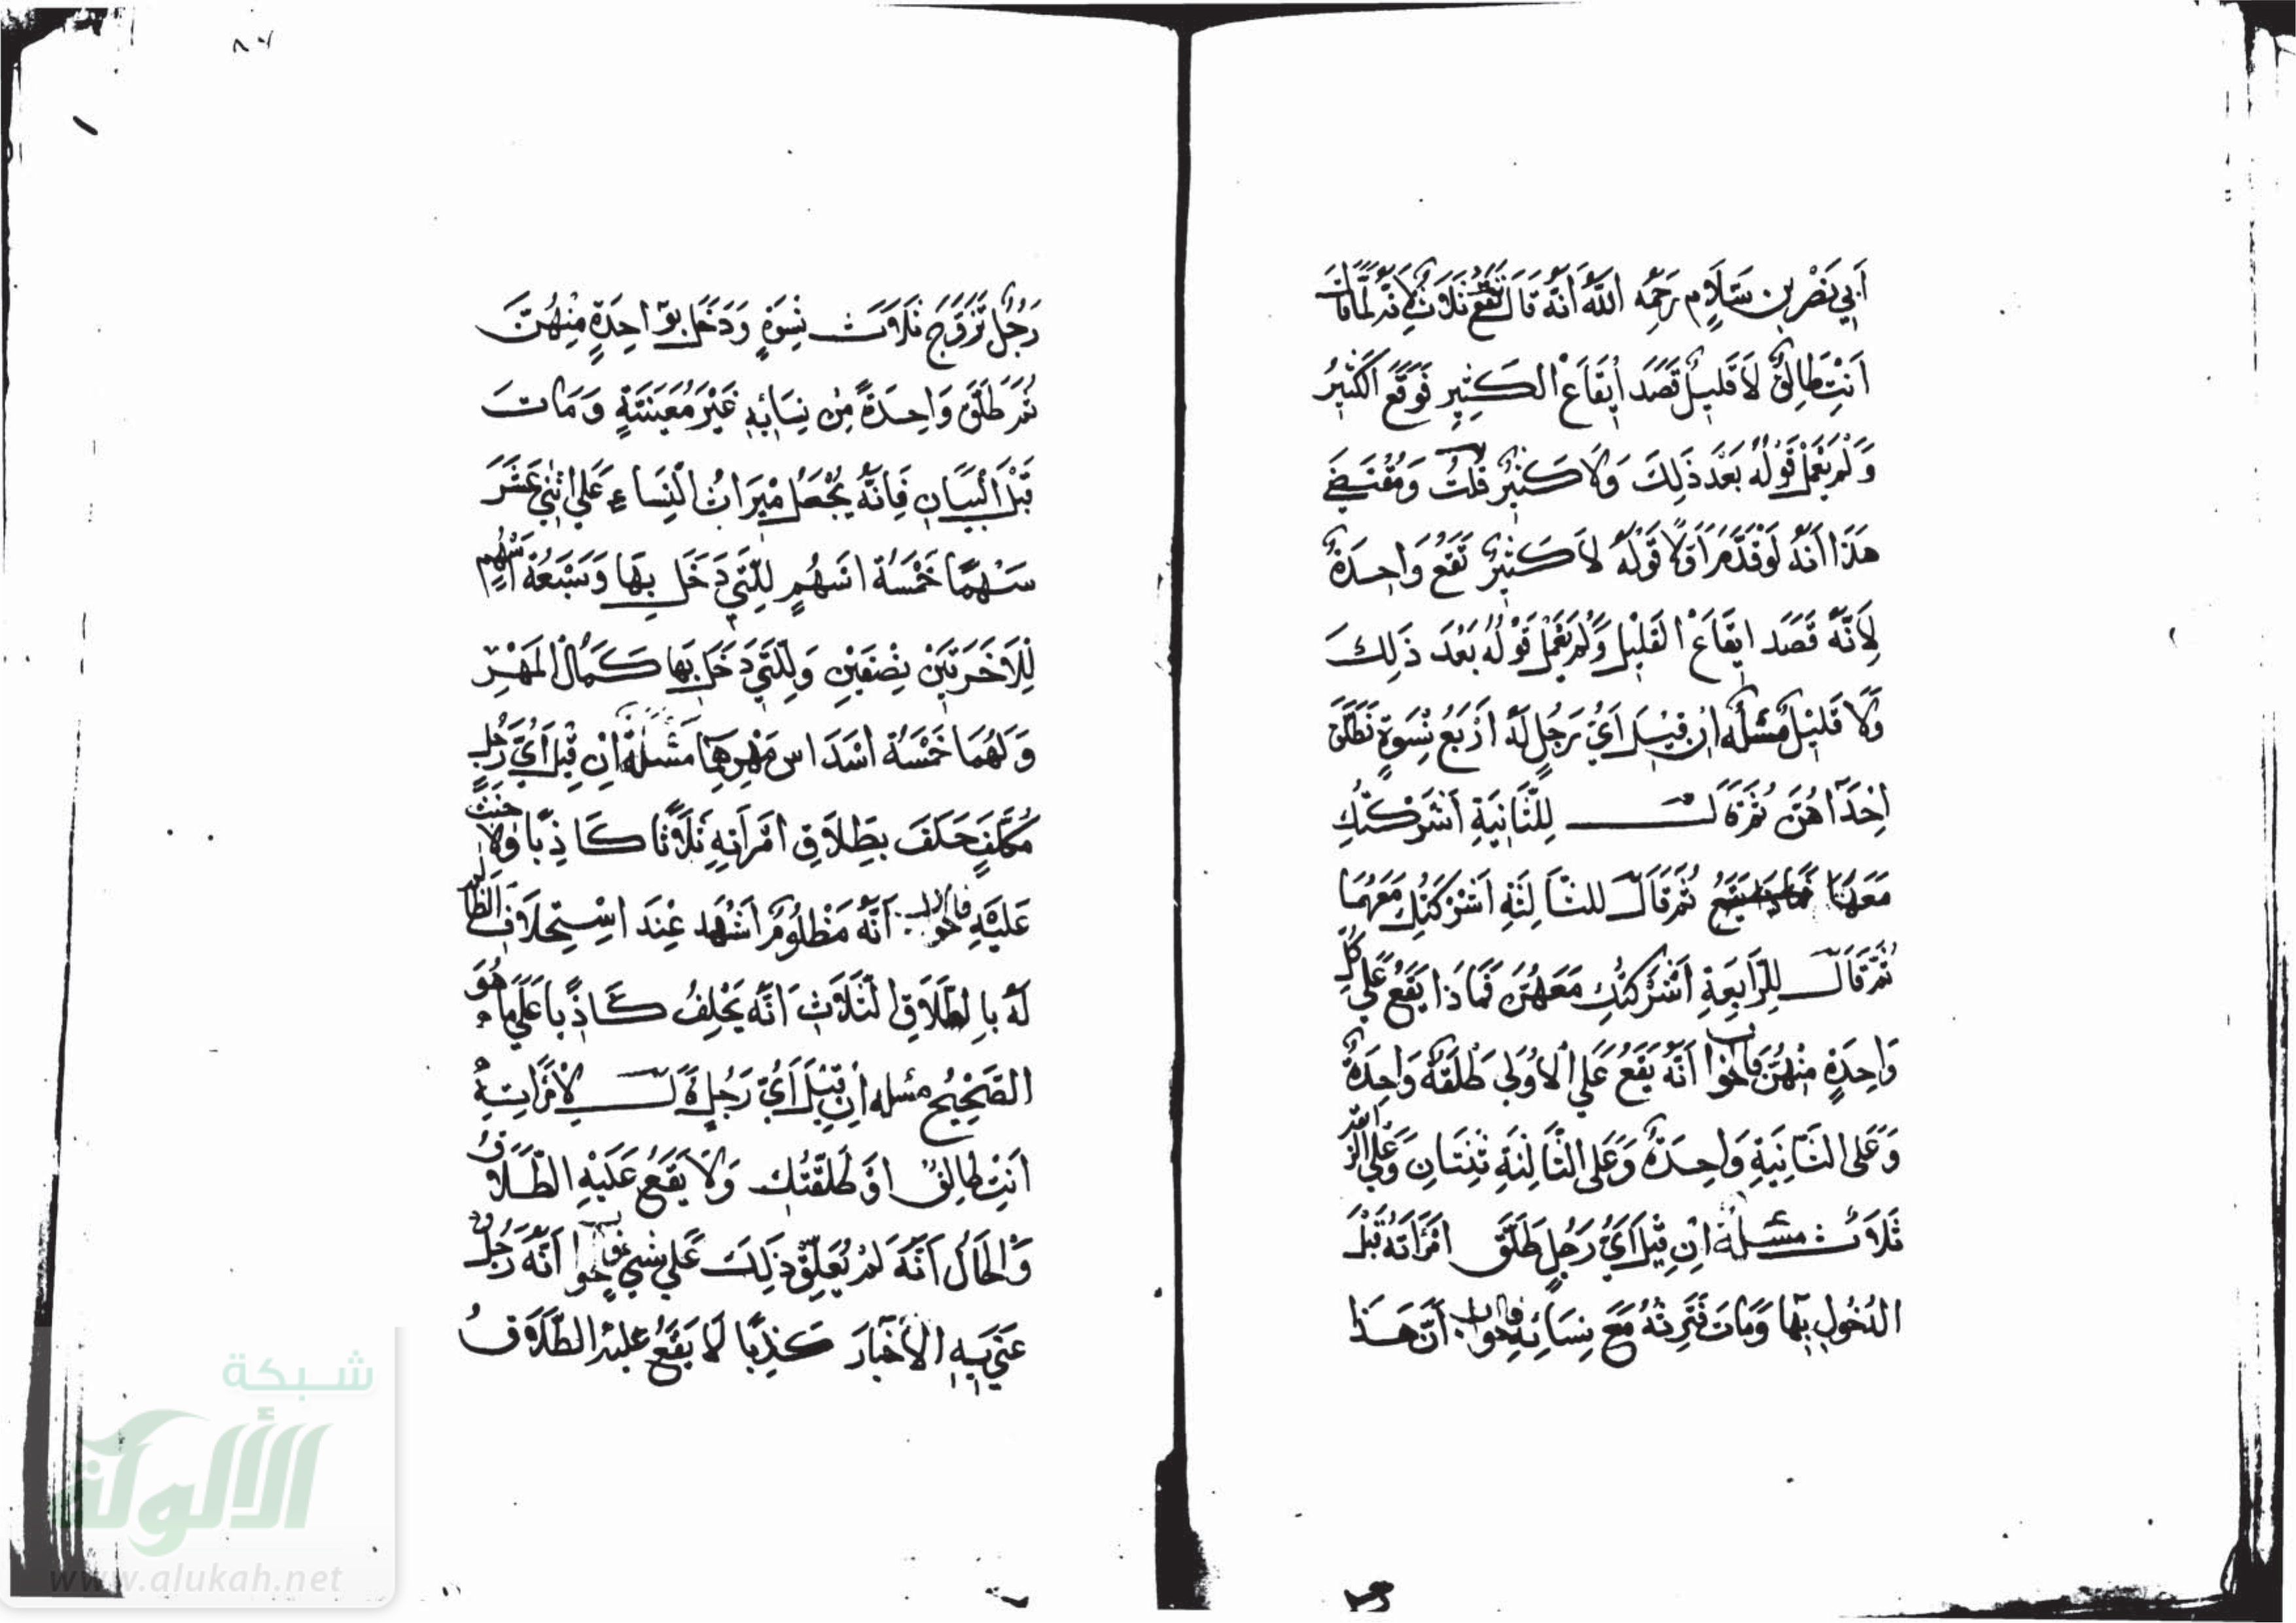 أَبِي نَصْرِ بنِ سَلَامٍ رَحِمَهُ اللَّهُ أَنَّهُ قَالَ تَقَعُ ثَلَاثٌ لِأَنَّهُ لَمَّا قَالَ
أَنْتِ طَالِقٌ لَا قَلِيلٌ قَصَدَ إِيقَاعَ الكَثِيرِ فَوَقَعَ الكَثِيرُ
وَلَمْ يَعْمَلْ قَوْلُهُ بَعْدَ ذَلِكَ وَلَا كَثِيرٌ قُلْتُ وَمُقْتَضَى
هَذَا أَنَّهُ لَوْ قَدَّمَ أَوَّلًا قَوْلَهُ لَا كَثِيرٌ تَقَعُ وَاحِدَةٌ
لِأَنَّهُ قَصَدَ ايقَاعَ القَلِيْلِ وَلَمْ يَعْمَلْ قَوْلُهُ بَعْدَ ذَلِكَ
وَلَا قَلِيْلٌ مَسْئَلَه إن قِيْلَ أَيُّ رَجُلٍ لَهُ أَرْبَعُ نِسْوَةٍ فَطَلَّقَ
إِحْدَاهُنَّ ثُمَّ قَالَ لِلثَّانِيَةِ أَشْرَكْتُكِ
مَعَهَا ثُمَّ قَالَ للثَّالِثَةِ أَشْرَكْتُكِ مَعَهُمَا
ثُمَّ قَالَ لِلرَّابِعَةِ أَشْرَكْتُكِ مَعَهُنَّ فَمَاذَا يَقَعُ عَلَى كُلِّ
وَاحِدَةٍ مِنْهُنَّ فالجواب أَنَّهُ يَقَعُ عَلَى الأُوْلَى طَلْقَةٌ وَاحِدَةٌ
وَعَلَى الثَّانِيَةِ وَاحِدَةٌ وَعَلَى الثَّالِثَةِ ثِنْتَانِ وَعَلَى الرَّابِعَةِ
ثَلَاثٌ مَسْئَلَةٌ إِنْ قِيْلَ أَيُّ رَجُلٍ طَلَّقَ امْرَأَتَهُ قَبْلَ
الدُخُولِ بِهَا وَمَاتَ فَتَرِثُهُ مَعَ نِسَائِهِ فالجواب أَنَّ هَذَا
رَجُلٌ تَزَوَّجَ ثَلَاثَ نِسْوَةٍ وَدَخَلَ بِوَاحِدَةٍ مِنْهُنَّ
ثُمَّ طَلَّقَ وَاحِدَةً مِنْ نِسَائِهِ غَيْرَ مُعَيَّنَةٍ وَمَاتَ
قَبْلَ الْبَيَانِ فَإِنَّهُ يُجْعَلُ مِيْرَاثُ النِّسَاءِ عَلَى اثْنَي عَشَرَ
سَهْمًا خَمْسَةُ اَسْهُمٍ لِلَّتِي دَخَلَ بِهَا وَسَبْعَةُ أَسْهُمٍ
لِلْأَخَرَتَيْنِ نِصْفَيْنِ وَلِلَّتِي دَخَلَ بِهَا كَمَالُ الْمَهْرِ
وَلَهُمَا خَمْسَةُ أَسْدَاسِ مَهْرِهِمَا مَسْئَلَةٌ إِنْ قِيْلَ أَيُّ رَجُلٍ
مُكَلَّفٍ حَلَفَ بِطَلَاقِ امْرَأَتِهِ ثَلَاثًا كَاذِبًا وَلَا حِنْثَ
عَلَيْهِ فالجواب أَنَّهُ مَظْلُومٌ أَشْهَدَ عِنْدَ اسْتِحْلَافِ الظَّالِمِ
لَهُ بِالطَّلَاقِ الثَّلَاثِ أَنَّهُ يَحْلِفُ كَاذِبًا عَلَى مَا هُوَ
الصَّحِيْحُ مسئله إِنْ قِيْلَ أَيُّ رَجُلٍ قَالَ لِامْرَأَتِهِ
أَنْتِ طَالِقٌ أَوْ طَلَّقْتُكِ وَلَا يَقَعُ عَلَيْهِ الطَّلَاقُ
وَالْحَالُ أَنَّهُ لَمْ يُعَلِّقْ ذَلِكَ عَلَى شَيءٍ فالجواب أَنَّهُ رَجُلٌ
عَنَى بِهِ الْأَخْبَارَ كَذِبًا لَا يَقَعُ عَلَيْهِ الطَّلَاقُ
شبكة
الألوكة
www.alukah.net